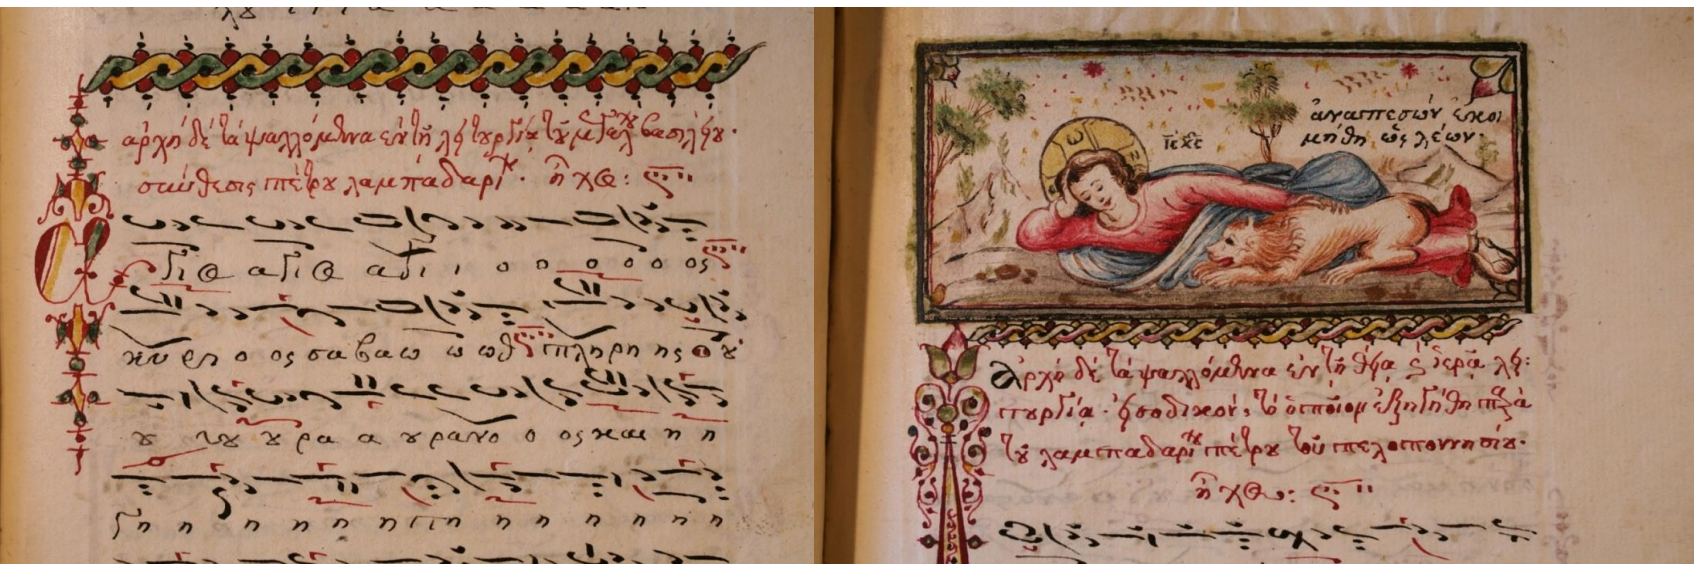 ἀρχὴ δὲ τὰ ψαλλόμενα ἐν τῇ λειτουργίᾳ τοῦ μεγάλου βασιλείου·
σύνθεσις πέτρου λαμπαδαρίου· ἦχος:
ο ο ο ο ο ος
κυ ρι ο ος σα βα ω ω ωθ πληρη ης ὁ ου
ρα α ουρανο ο ος και η η
γη η η η η η η η η η η
ἀναπεσὼν ἐκοι
μήθη ὡς λέων·
ΙΣ ΧΣ
Ἀρχὴ δὲ τὰ ψαλλόμενα ἐν τῇ θείᾳ καὶ ἱερᾷ λει:
τουργίᾳ· εἰσοδικόν, τὸ ὁποῖον ἐξηγήθη παρὰ
τοῦ λαμπαδαρίου πέτρου τοῦ πελοποννησίου·
ἦχος: